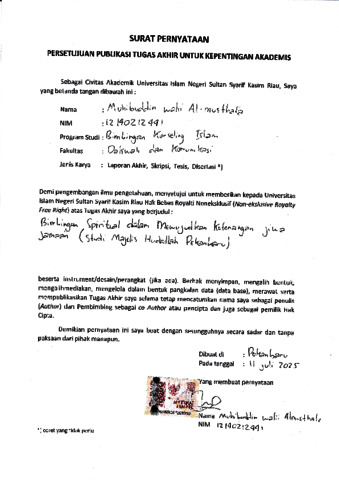 SURAT PERNYATAAN
PERSETUJUAN PUBLIKASI TUGAS AKHIR UNTUK KEPENTINGAN AKADEMIS
Sebagai Civitas Akademik Universitas Islam Negeri Sultan Syarif Kasim Riau, Saya
yang bertanda tangan dibawah ini :
Nama : Muhibuddin wali Al-musthafa
NIM : 12140212491
Program Studi : Bimbingan Konseling Islam
Fakultas : Dakwah dan Komunikasi
Jenis Karya : Laporan Akhir, Skripsi, Tesis, Disertasi *)
Demi pengembangan ilmu pengetahuan, menyetujui untuk memberikan kepada Universitas
Islam Negeri Sultan Syarif Kasim Riau Hak Bebas Royalti Noneksklusif (Non-eksklusive Royalty
Free Right) atas Tugas Akhir saya yang berjudul :
Bimbingan Spiritual dalam Mewujudkan Ketenangan jiwa
Jamaah (Studi Majelis Pekanbaru)
beserta instrument/desain/perangkat (jika ada). Berhak menyimpan, mengalih bentuk,
mengalihmediakan, mengelola dalam bentuk pangkalan data (data base), merawat serta
mempublikasikan Tugas Akhir saya selama tetap mencatumkan nama saya sebagai penulis
(Author) dan Pembimbing sebagai co Author atau pencipta dan juga sebagai pemilik Hak
Cipta.
Demikian pernyataan ini saya buat dengan sesungguhnya secara sadar dan tanpa
paksaan dari pihak manapun.
Dibuat di : Pekanbaru
Pada tanggal : 11 juli 2025
Yang membuat pernyataan
Nama Muhibuddin wali Almusthafa
NIM 12140212491
*) coret yang tidak perlu